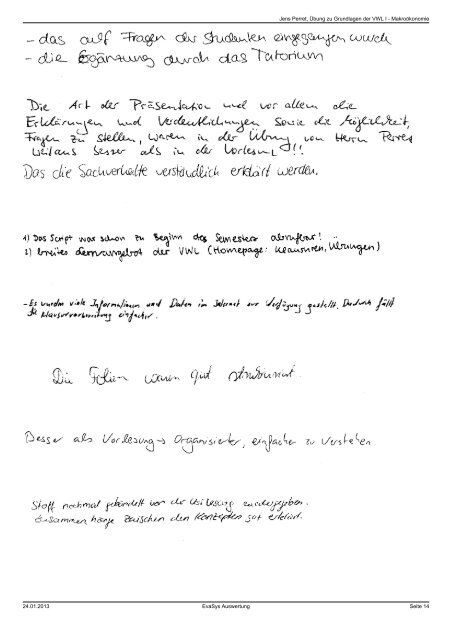 Jens Perret, Übung zu Grundlagen der VWL I - Makroökonomie
- das auf Fragen der Studenten eingegangen wurde
- die Ergänzung durch das Tutorium
Die Art der Präsentation und vor allem die
Erklärungen und Verdeutlichungen sowie die Möglichkeit,
Fragen zu stellen, waren in der Übung von Herrn Perret
weitaus besser als in der Vorlesung!!
Das die Sachverhalte verständlich erklärt werden.
1) Das Script war schon zu Beginn des Semesters abrufbar!
2) breites Lernangebot der VWL (Homepage: Klausuren, Übungen)
- Es wurden viele Informationen und Daten im Internet zur Verfügung gestellt. Dadurch fällt
die Klausurvorbereitung einfacher.
Die Folien waren gut strukturiert
Besser als Vorlesung → Organisierter, einfacher zu verstehen
Stoff nochmal gebündelt vor der
Zusammenhänge zwischen den Konzepten gut erklärt.
24.01.2013 EvaSys Auswertung Seite 14